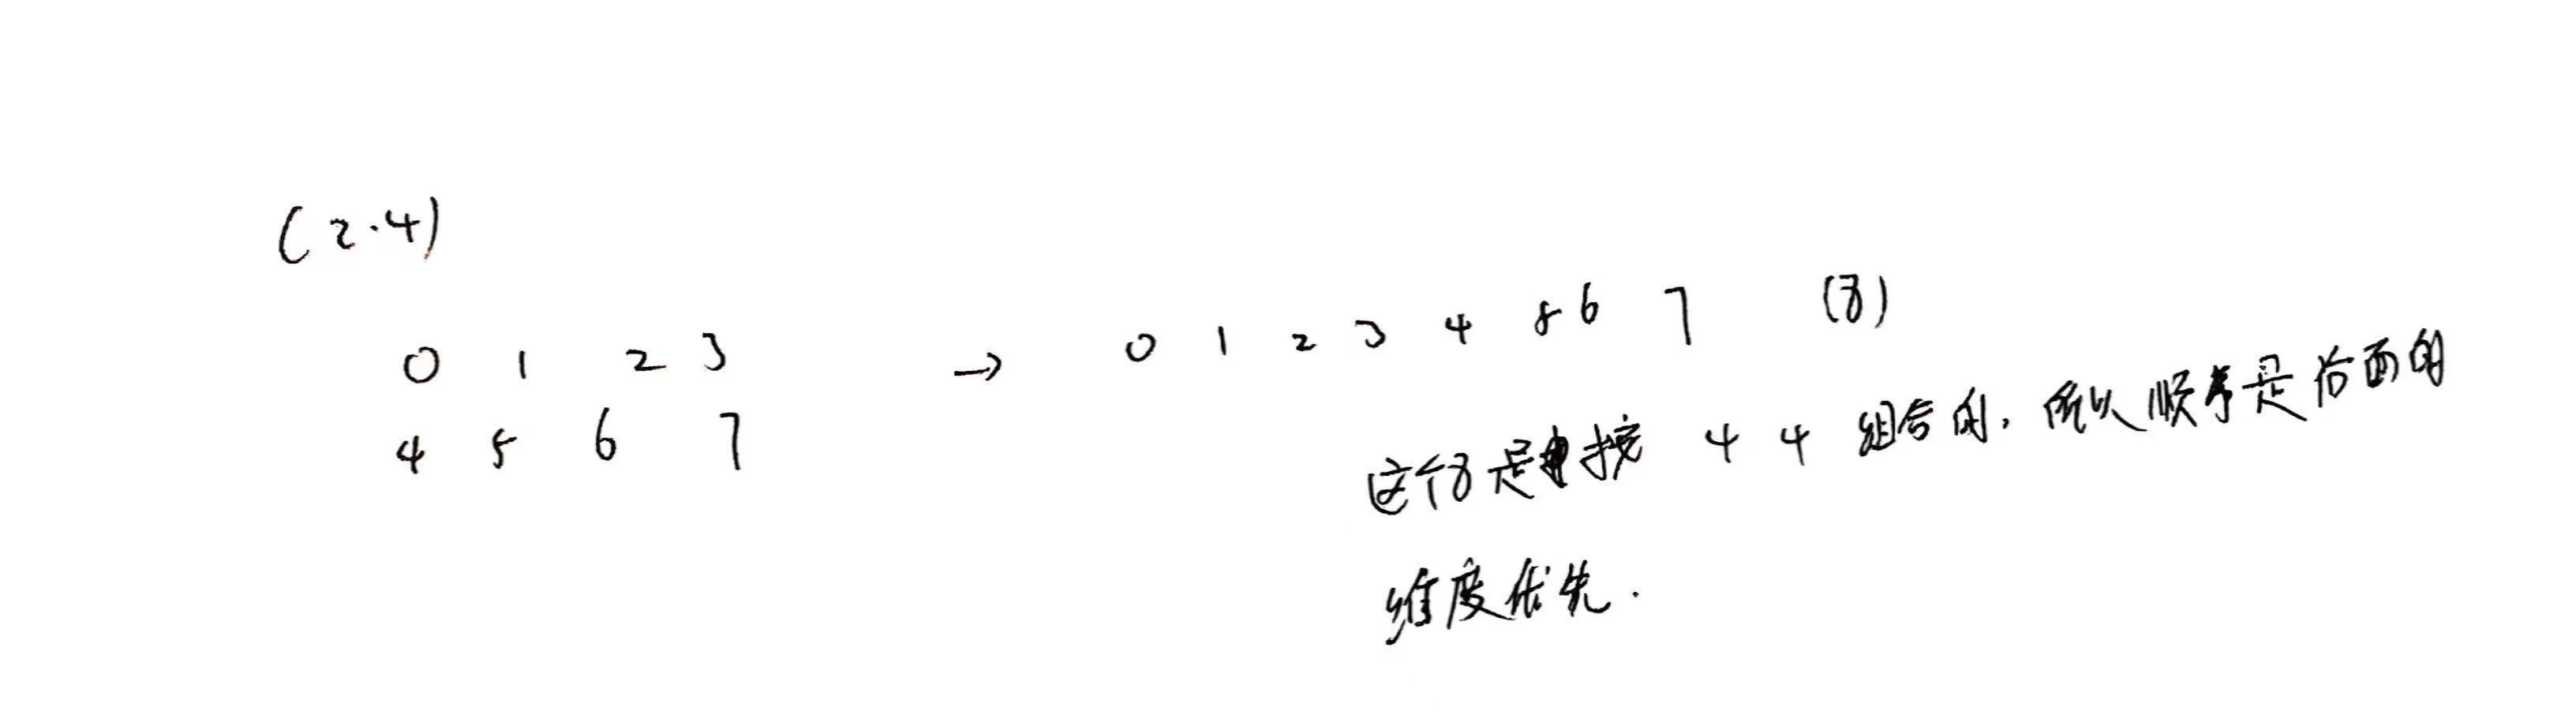 (2.4)
0 1 2 3 → 0 1 2 3 4 5 6 7 (8)
4 5 6 7
这个8是按 4 4 组合的,所以顺序是后面的
维度优先.